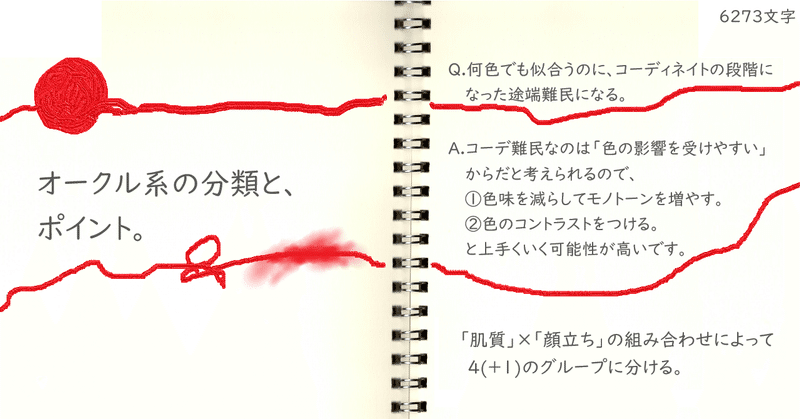 6273文字
オークル系の分類と、
ポイント。
Q.何色でも似合うのに、コーディネイトの段階に
なった途端難民になる。
A.コーデ難民なのは「色の影響を受けやすい」
からだと考えられるので、
①色味を減らしてモノトーンを増やす。
②色のコントラストをつける。
と上手くいく可能性が高いです。
「肌質」×「顔立ち」の組み合わせによって
4(+1)のグループに分ける。